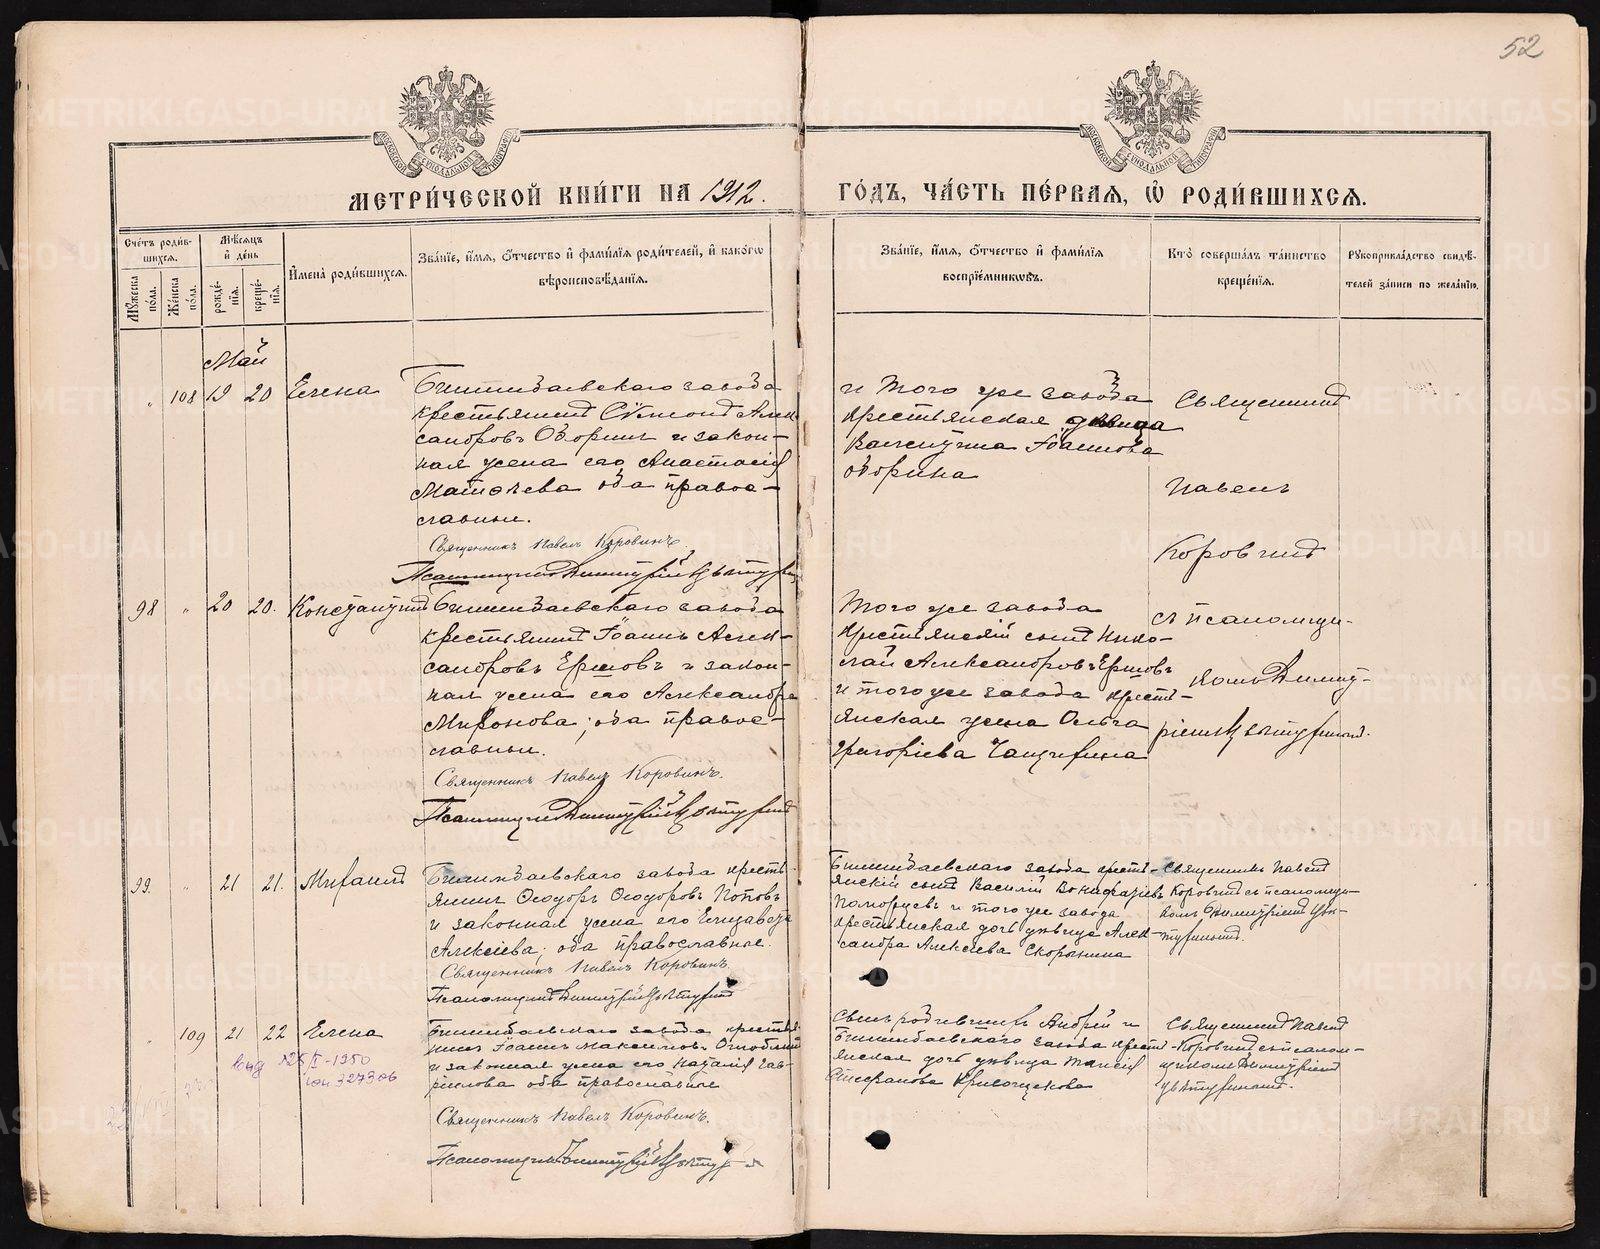 52
МЕТРИ́ЧЕСКОЙ КНИ́ГИ НА 1912.
ГО́ДЪ, ЧА́СТЬ ПЕ́РВАЯ, Ѽ РОДИ́ВШИХСЯ.
Сче́тъ роди́в-
шихся.
Му́жеска по́ла.
Же́нска по́ла.
Мѣ́сяцъ и де́нь
рожде́-
нія.
креще́-
нія.
Имена̀ роди́вшихся.
Зва́ніе, и́мя, ѻ҆́тчество и фами́лія роди́телей, и како́гѡ
вѣроисповѣ́данія.
Зва́ніе, и́мя, ѻ҆́тчество и фами́лія
воспріе́мникѡвъ.
Кто̀ соверша́лъ та́инство
креще́нія.
Рꙋкоприкла́дство свидѣ́-
телей за́писи по жела́нію.
Май
" 108 19 20 Елена
Билимбаевскаго завода
крестьянинъ Сѵмеонъ Алек-
сандровъ Оборинъ и закон-
ная жена его Анастасія
Матѳеева оба правос-
лавные.
Священникъ Павелъ Коровинъ.
Псаломщикъ Димитрій Цвѣтух
и того же завода
крестьянская дѣвица
Іоаннова
Оборина
Священникъ
Павелъ
Коровинъ
съ псаломщи-
комъ Димит-
ріемъ
98 " 20 20. Константинъ
Билимбаевскаго завода
крестьянинъ Іоаннъ Алек-
сандровъ Ершовъ и закон-
ная жена его Александра
Миронова; оба правос-
лавные.
Священникъ Павелъ Коровинъ.
Псаломщикъ Димитрій
Того же завода
крестьянскій сынъ Нико-
лай Александровъ Ершовъ
и того же завода кресть-
янская жена Ольга
Григоріева
99. " 21 21. Михаилъ
Билимбаевскаго завода кресть-
янинъ Ѳеодоръ Ѳеодоровъ Поповъ
и законная жена его Елизавета
Алексіева; оба православные.
Священникъ Павелъ Коровинъ.
Псаломщикъ Димитрій
Билимбаевскаго завода кресть-
янскій сынъ Василій Вонифатіевъ
и того же завода
крестьянская дочь дѣвица Алек-
сандра Алексіева Скорынина
Священникъ Павелъ
Коровинъ съ псаломщи-
комъ Димитріемъ Цвѣ-
" 109 21 22 Елена
Билимбаевскаго завода крестья-
нинъ Іоаннъ Максимовъ
и законная жена его Наталія Гав-
ріилова оба православные
Священникъ Павелъ Коровинъ.
Псаломщикъ Димитрій
Сынъ родившихъ Андрей и
Билимбаевскаго завода кресть-
янская дочь дѣвица Таисія
Стефанова Кривощекова
Священникъ Павелъ
Коровинъ съ псалом-
щикомъ Димитріемъ
выд 25/I-1950
ЮИ 327306
METRIKI.GASO-URAL.RU